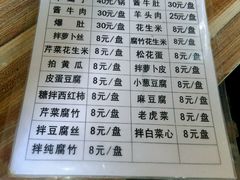 40元/盘 酱牛肚 30元/盘
酱牛肉 35元/盘 羊头肉 25元/盘
爆肚 花生米 8元/盘
拌萝卜丝 8元/盘 腐竹花生米 8元/盘
芹菜花生米 8元/盘 松花蛋 8元/盘
拍黄瓜 8元/盘 拌萝卜皮 8元/盘
皮蛋豆腐 8元/盘 小葱豆腐 8元/盘
糖拌西红柿 8元/盘 麻豆腐 8元/盘
芹菜腐竹 8元/盘 老虎菜 8元/盘
拌豆腐丝 8元/盘 拌白菜心 8元/盘
拌纯腐竹 8元/盘